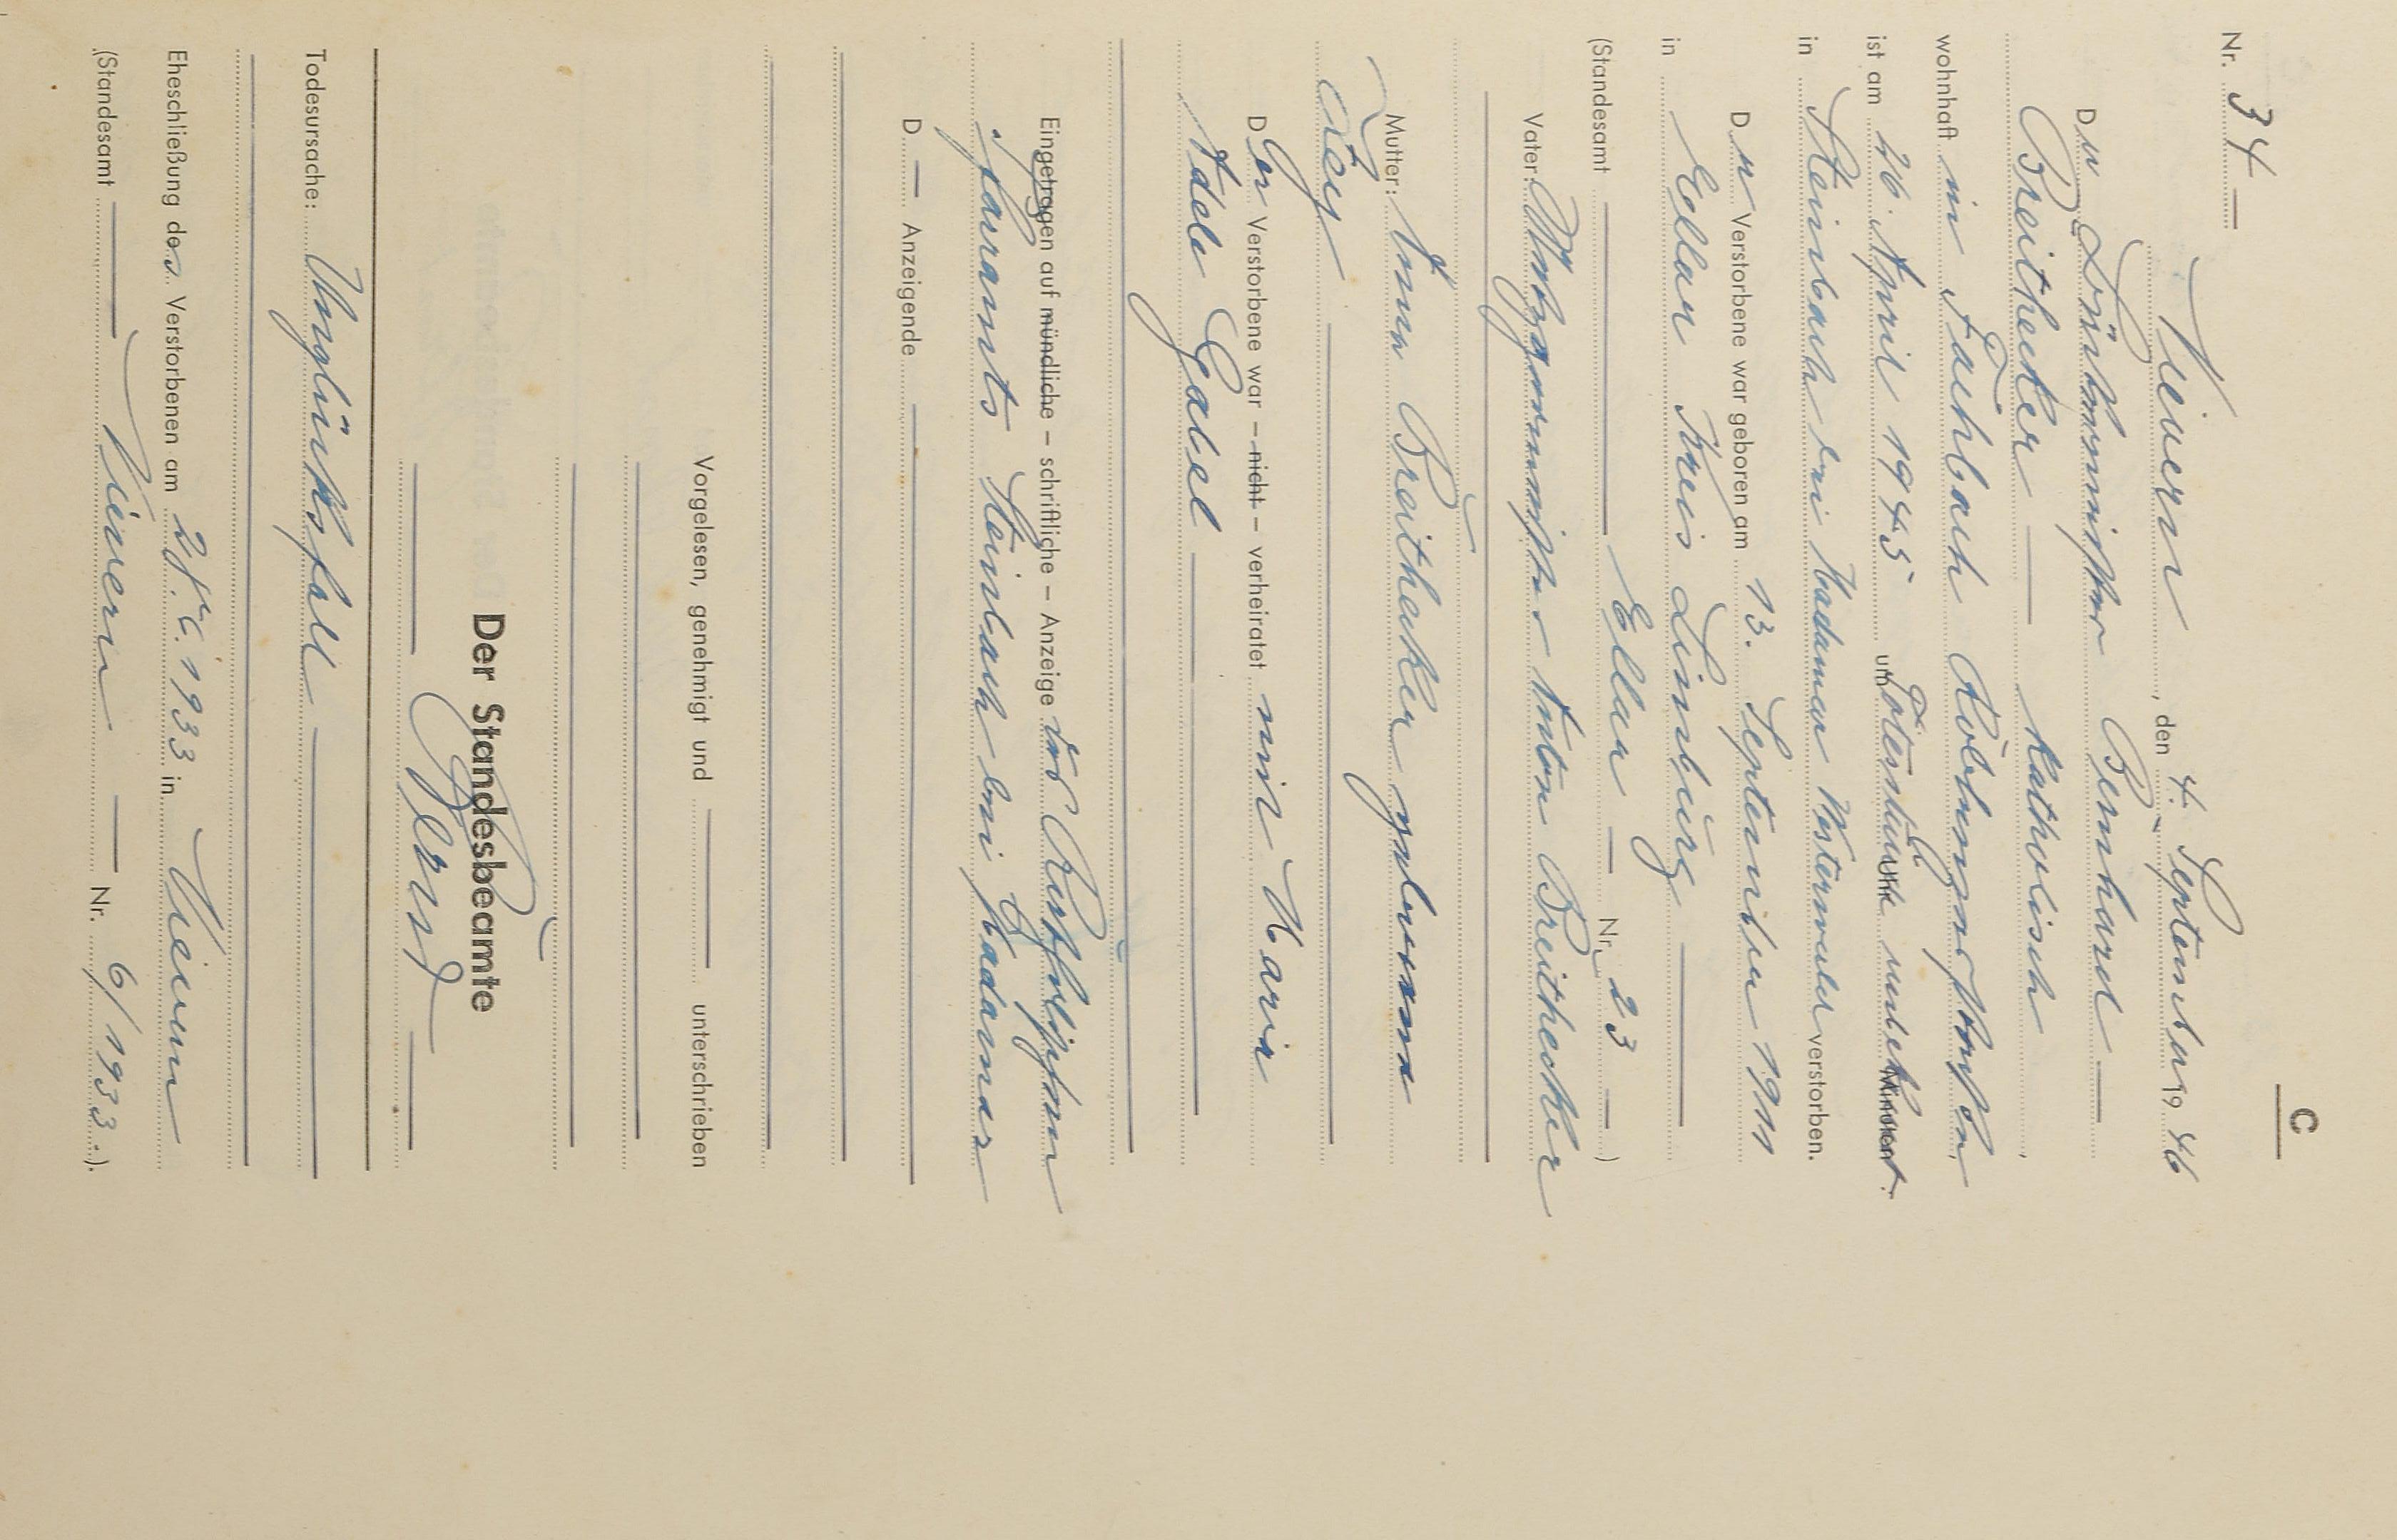 C
Nr. 34 —
Nievern, den 4. September 1946
Der Bernhard —
Breithecker — katholisch
wohnhaft in Fachbach
ist am 26. April 1945 um Uhr unbekannt Minuten
in Steinbach bei Hadamar Westerwald verstorben.
Der Verstorbene war geboren am 13. September 1911
in Ellar Kreis Limburg —
(Standesamt — Ellar — Nr. 23 —)
Vater: Anton Breithecker
Mutter: Anna Breithecker geborene
Ley —
Der Verstorbene war – nicht – verheiratet mit Maria
Adele Gabel —
Eingetragen auf mündliche – schriftliche – Anzeige des
Steinbach bei Hadamar
D — Anzeigende —
Vorgelesen, genehmigt und — unterschrieben
Der Standesbeamte
Todesursache: Unglücksfall —
Eheschließung des Verstorbenen am 1933 in Nievern
(Standesamt — Nievern — Nr. 6/1933.).